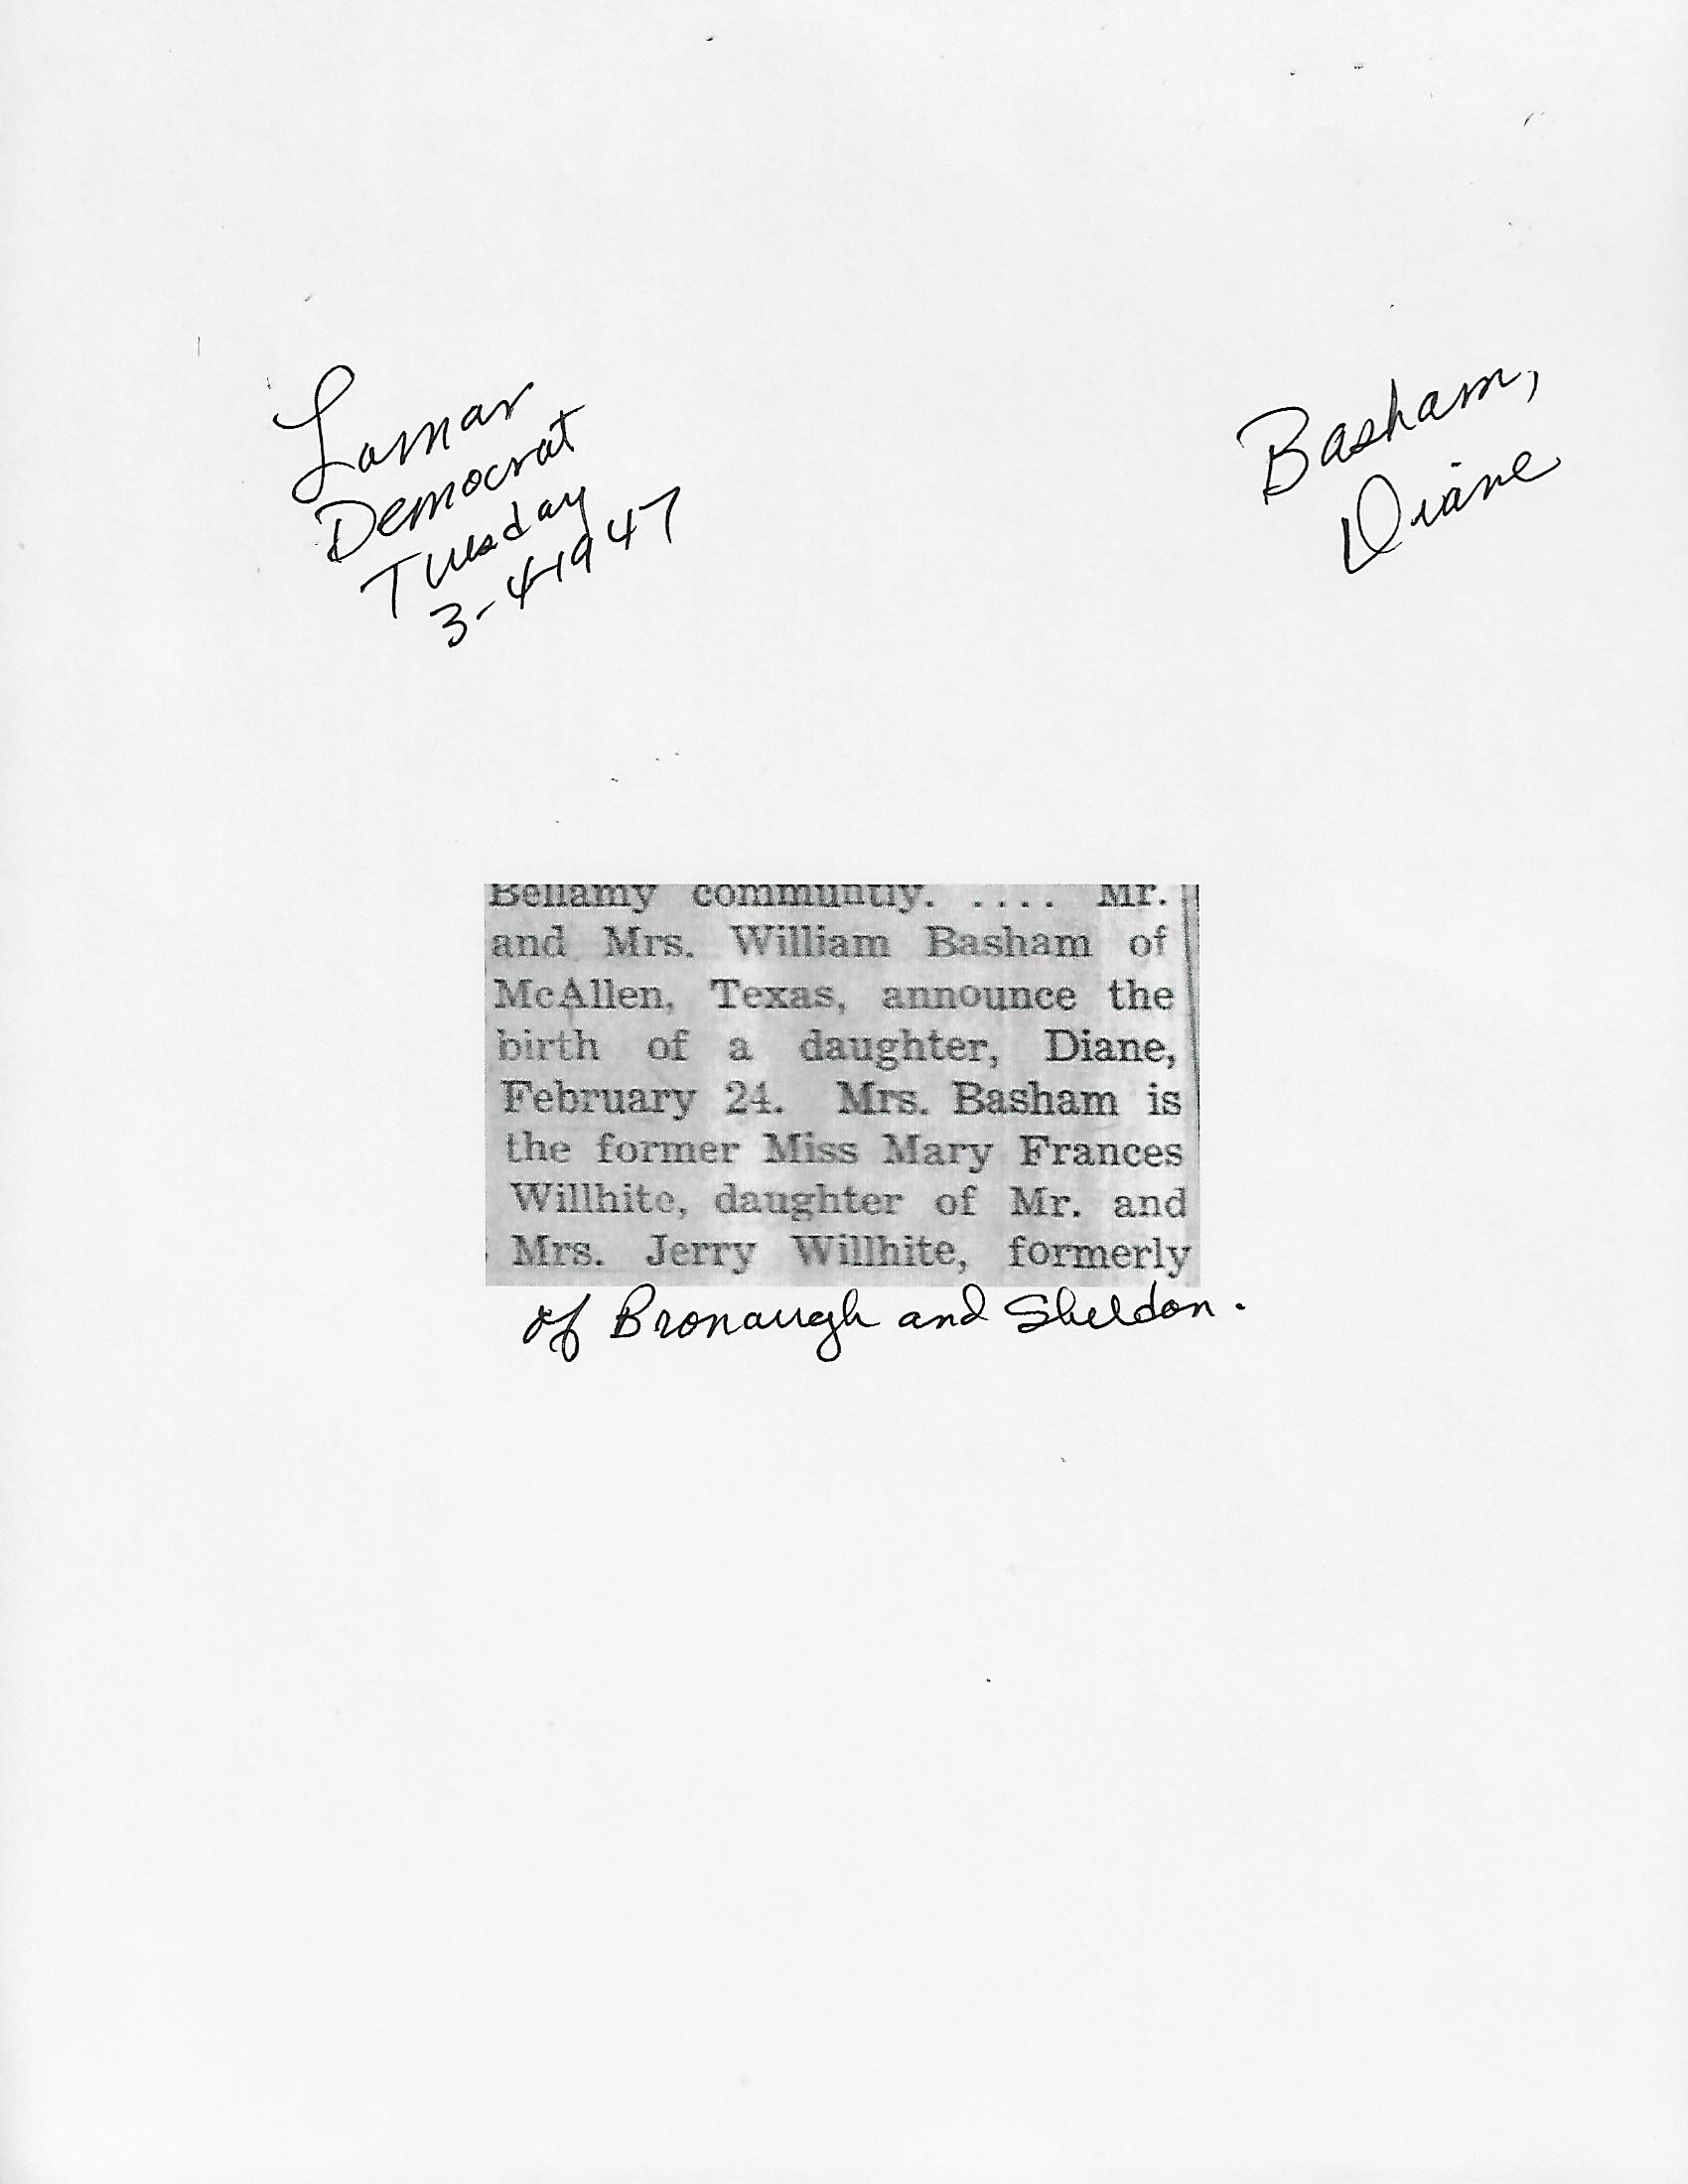 Lamar
Democrat
Tuesday
3-4-1947
Basham,
Diane
Bellamy communtiy. .... Mr.
and Mrs. William Basham of
McAllen, Texas, announce the
birth of a daughter, Diane,
February 24. Mrs. Basham is
the former Miss Mary Frances
Willhite, daughter of Mr. and
Mrs. Jerry Willhite, formerly
of Bronaugh and Sheldon.